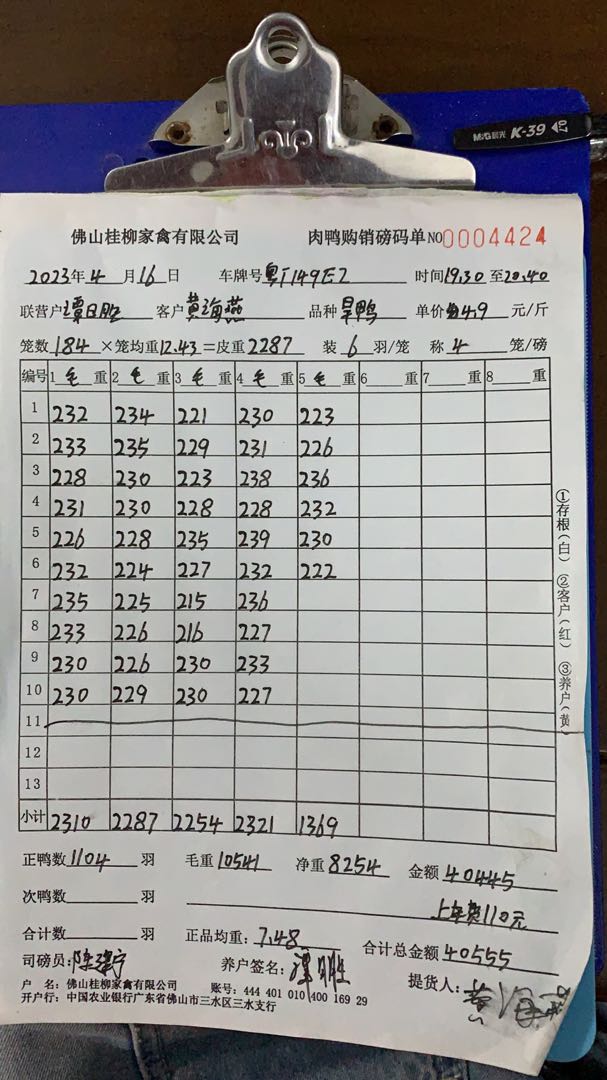 M&G 晨光 K-39 07
佛山桂柳家禽有限公司 肉鸭购销磅码单 NO 0004424
2023年4月16日 车牌号粤T149E2 时间19.30至20.40
联营户谭日胜 客户黄海燕 品种旱鸭 单价4.9元/斤
笼数184×笼均重12.43=皮重2287 装6羽/笼 称4笼/磅
编号 1毛重 2毛重 3毛重 4毛重 5毛重 6重 7重 8重
1 232 234 221 230 223
2 233 235 229 231 226
3 228 230 223 238 236
4 231 230 228 228 232
5 226 228 235 239 230
6 232 224 227 232 222
7 235 225 215 236
8 233 226 216 227
9 230 226 230 233
10 230 229 230 227
11
12
13
小计 2310 2287 2254 2321 1369
①存根(白) ②客户(红) ③养户(黄
正鸭数1104羽 毛重10541 净重8254 金额40445
次鸭数 羽 上车费110元
合计数 羽 正品均重:7.48 合计总金额40555
司磅员: 养户签名: 提货人:
户 名:佛山桂柳家禽有限公司 账号:444 401 010 400 169 29
开户行:中国农业银行广东省佛山市三水区三水支行